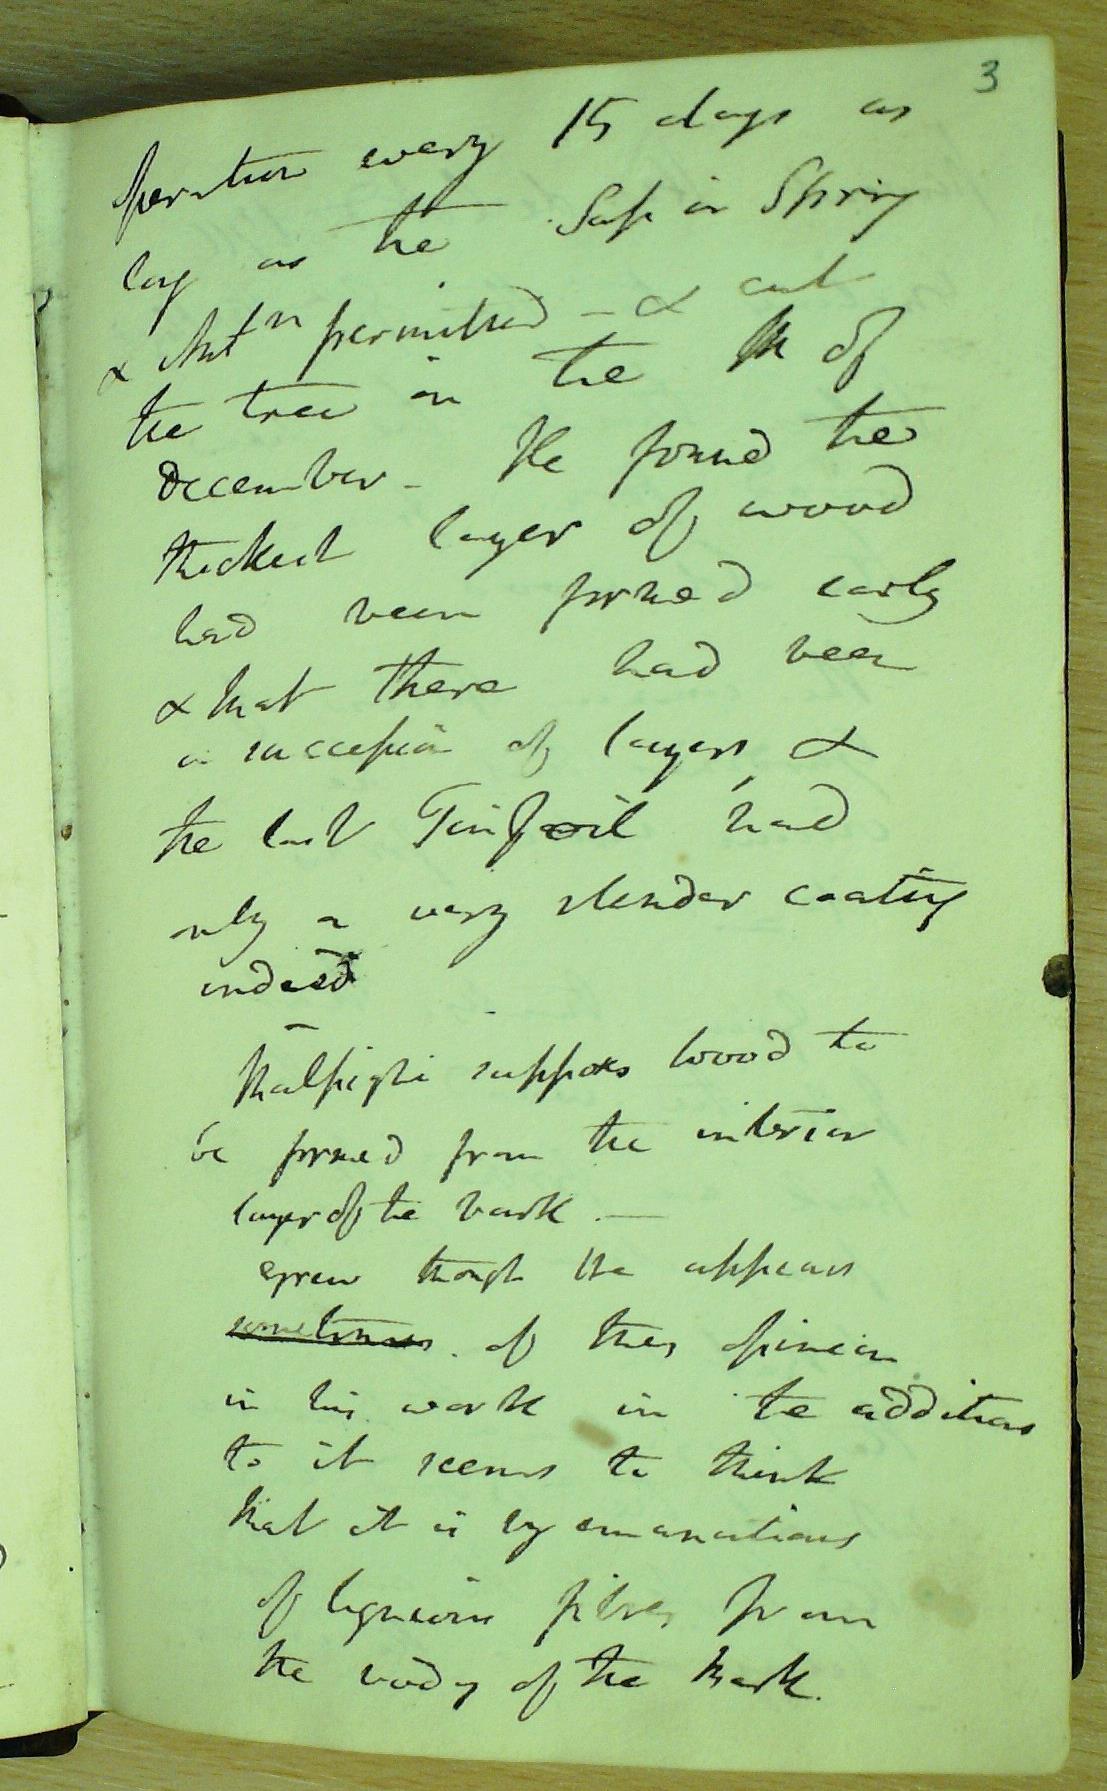 3
operation every 15 days as
long as the Sap in Spring
& Autn permitted - & cut
the tree in the M of
December - He found the
thickest layer of wood
had been formed early
& that there had been
a succession of layers &
the last Tinfoil had
only a very slender coating
indeed
Malpighi supposes wood to
be formed from the interior
layer of the bark —
Grew though he appears
sometimes of this opinion
in his work in the additions
to it seems to think
that it is by emanations
of ligneous fibres from
the body of the bark.